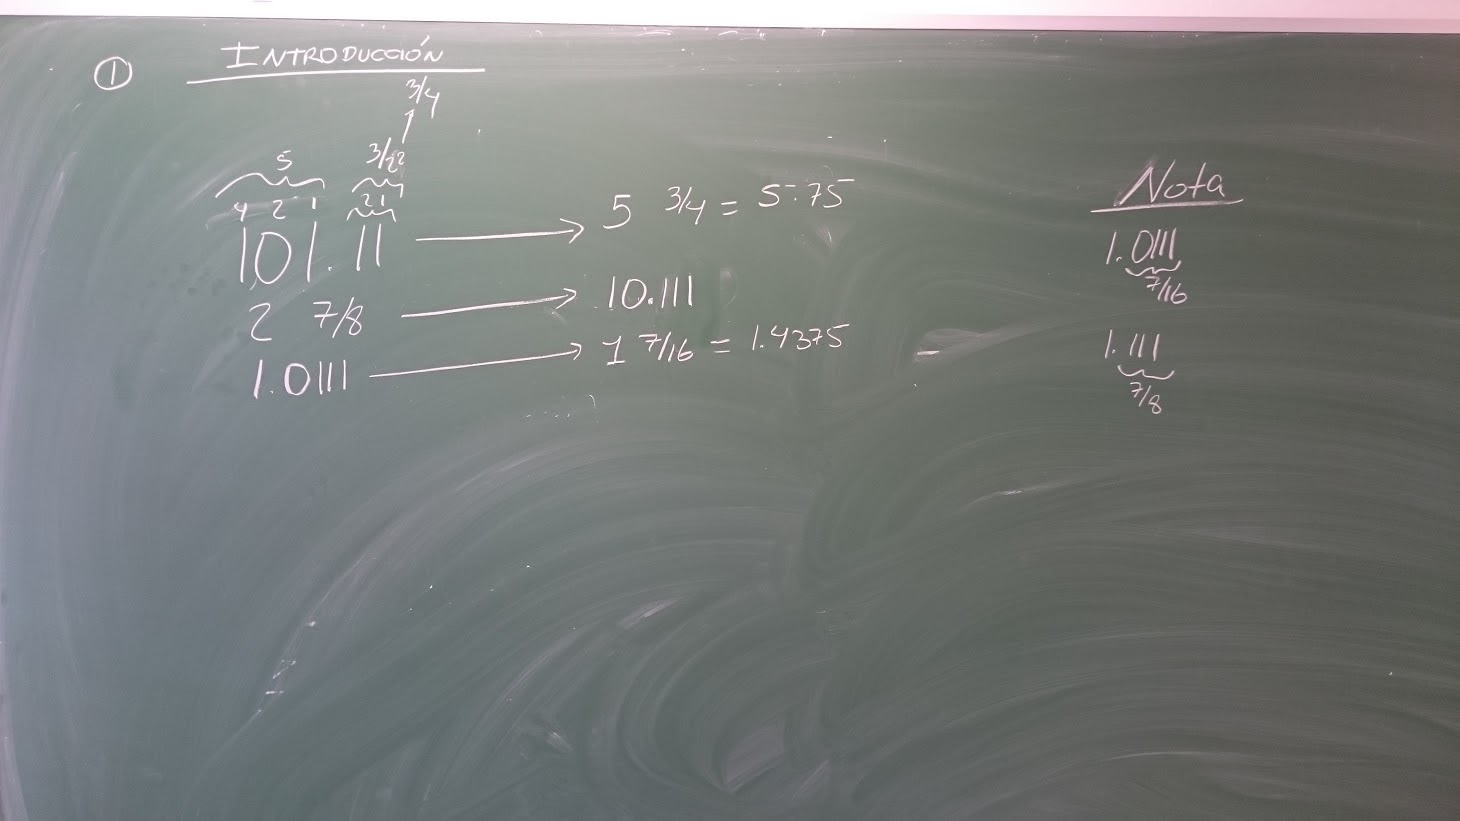 ① INTRODUCCIÓN
3/4
5 3/2²
4 2 1 2 1
101.11 → 5 3/4 = 5.75
2 7/8 → 10.111
1.0111 → 1 7/16 = 1.4375
Nota
1.0111
7/16
1.111
7/8